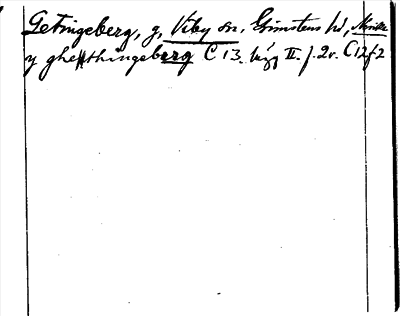 Getingeberg, g, Viby sn, Grimstens hd, Närike
y ghetthingeberg C 13. II f. 2v. C12f2